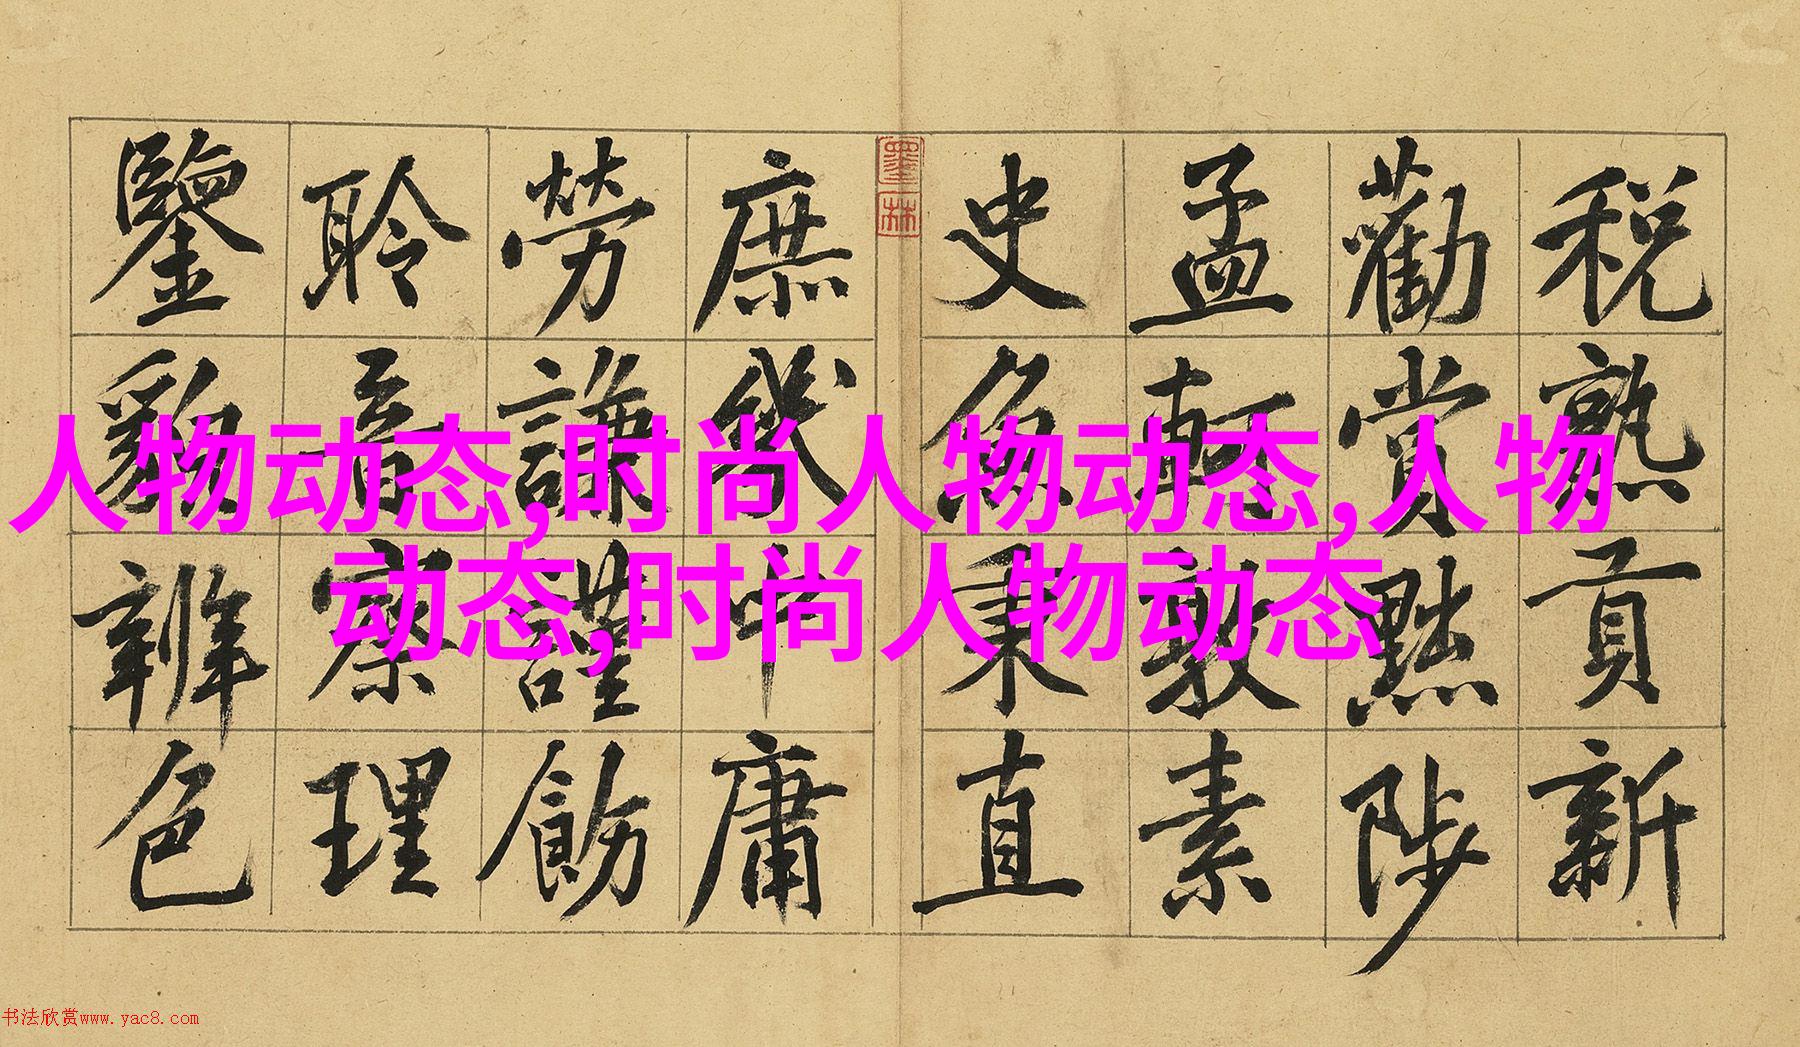 税熟貢新
勸賞黜陟
孟軻敦素
史魚秉直
墨林
庶幾中庸
勞謙謹飭
聆音察理
鑒貌辨色
人物动态,时尚人物动态,人物
动态,时尚人物动态
书法欣赏www.yac8.com